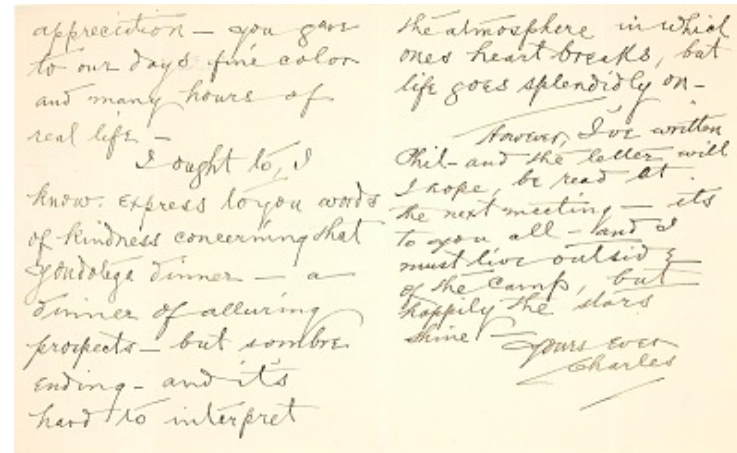 appreciation — you gave
to our days fine color
and many hours of
real life —
I ought to, I
know. express to you words
of kindness concerning that
Yondotega dinner — a
dinner of alluring
prospects — but sombre
ending — and it's
hard to interpret
the atmosphere in which
ones heart breaks, but
life goes splendidly on —
However, I've written
Phil — and the letter will
I hope, be read at
the next meeting — its
to you all — and I
must live outside
of the camp, but
happily the stars
shine —
Yours ever
Charles